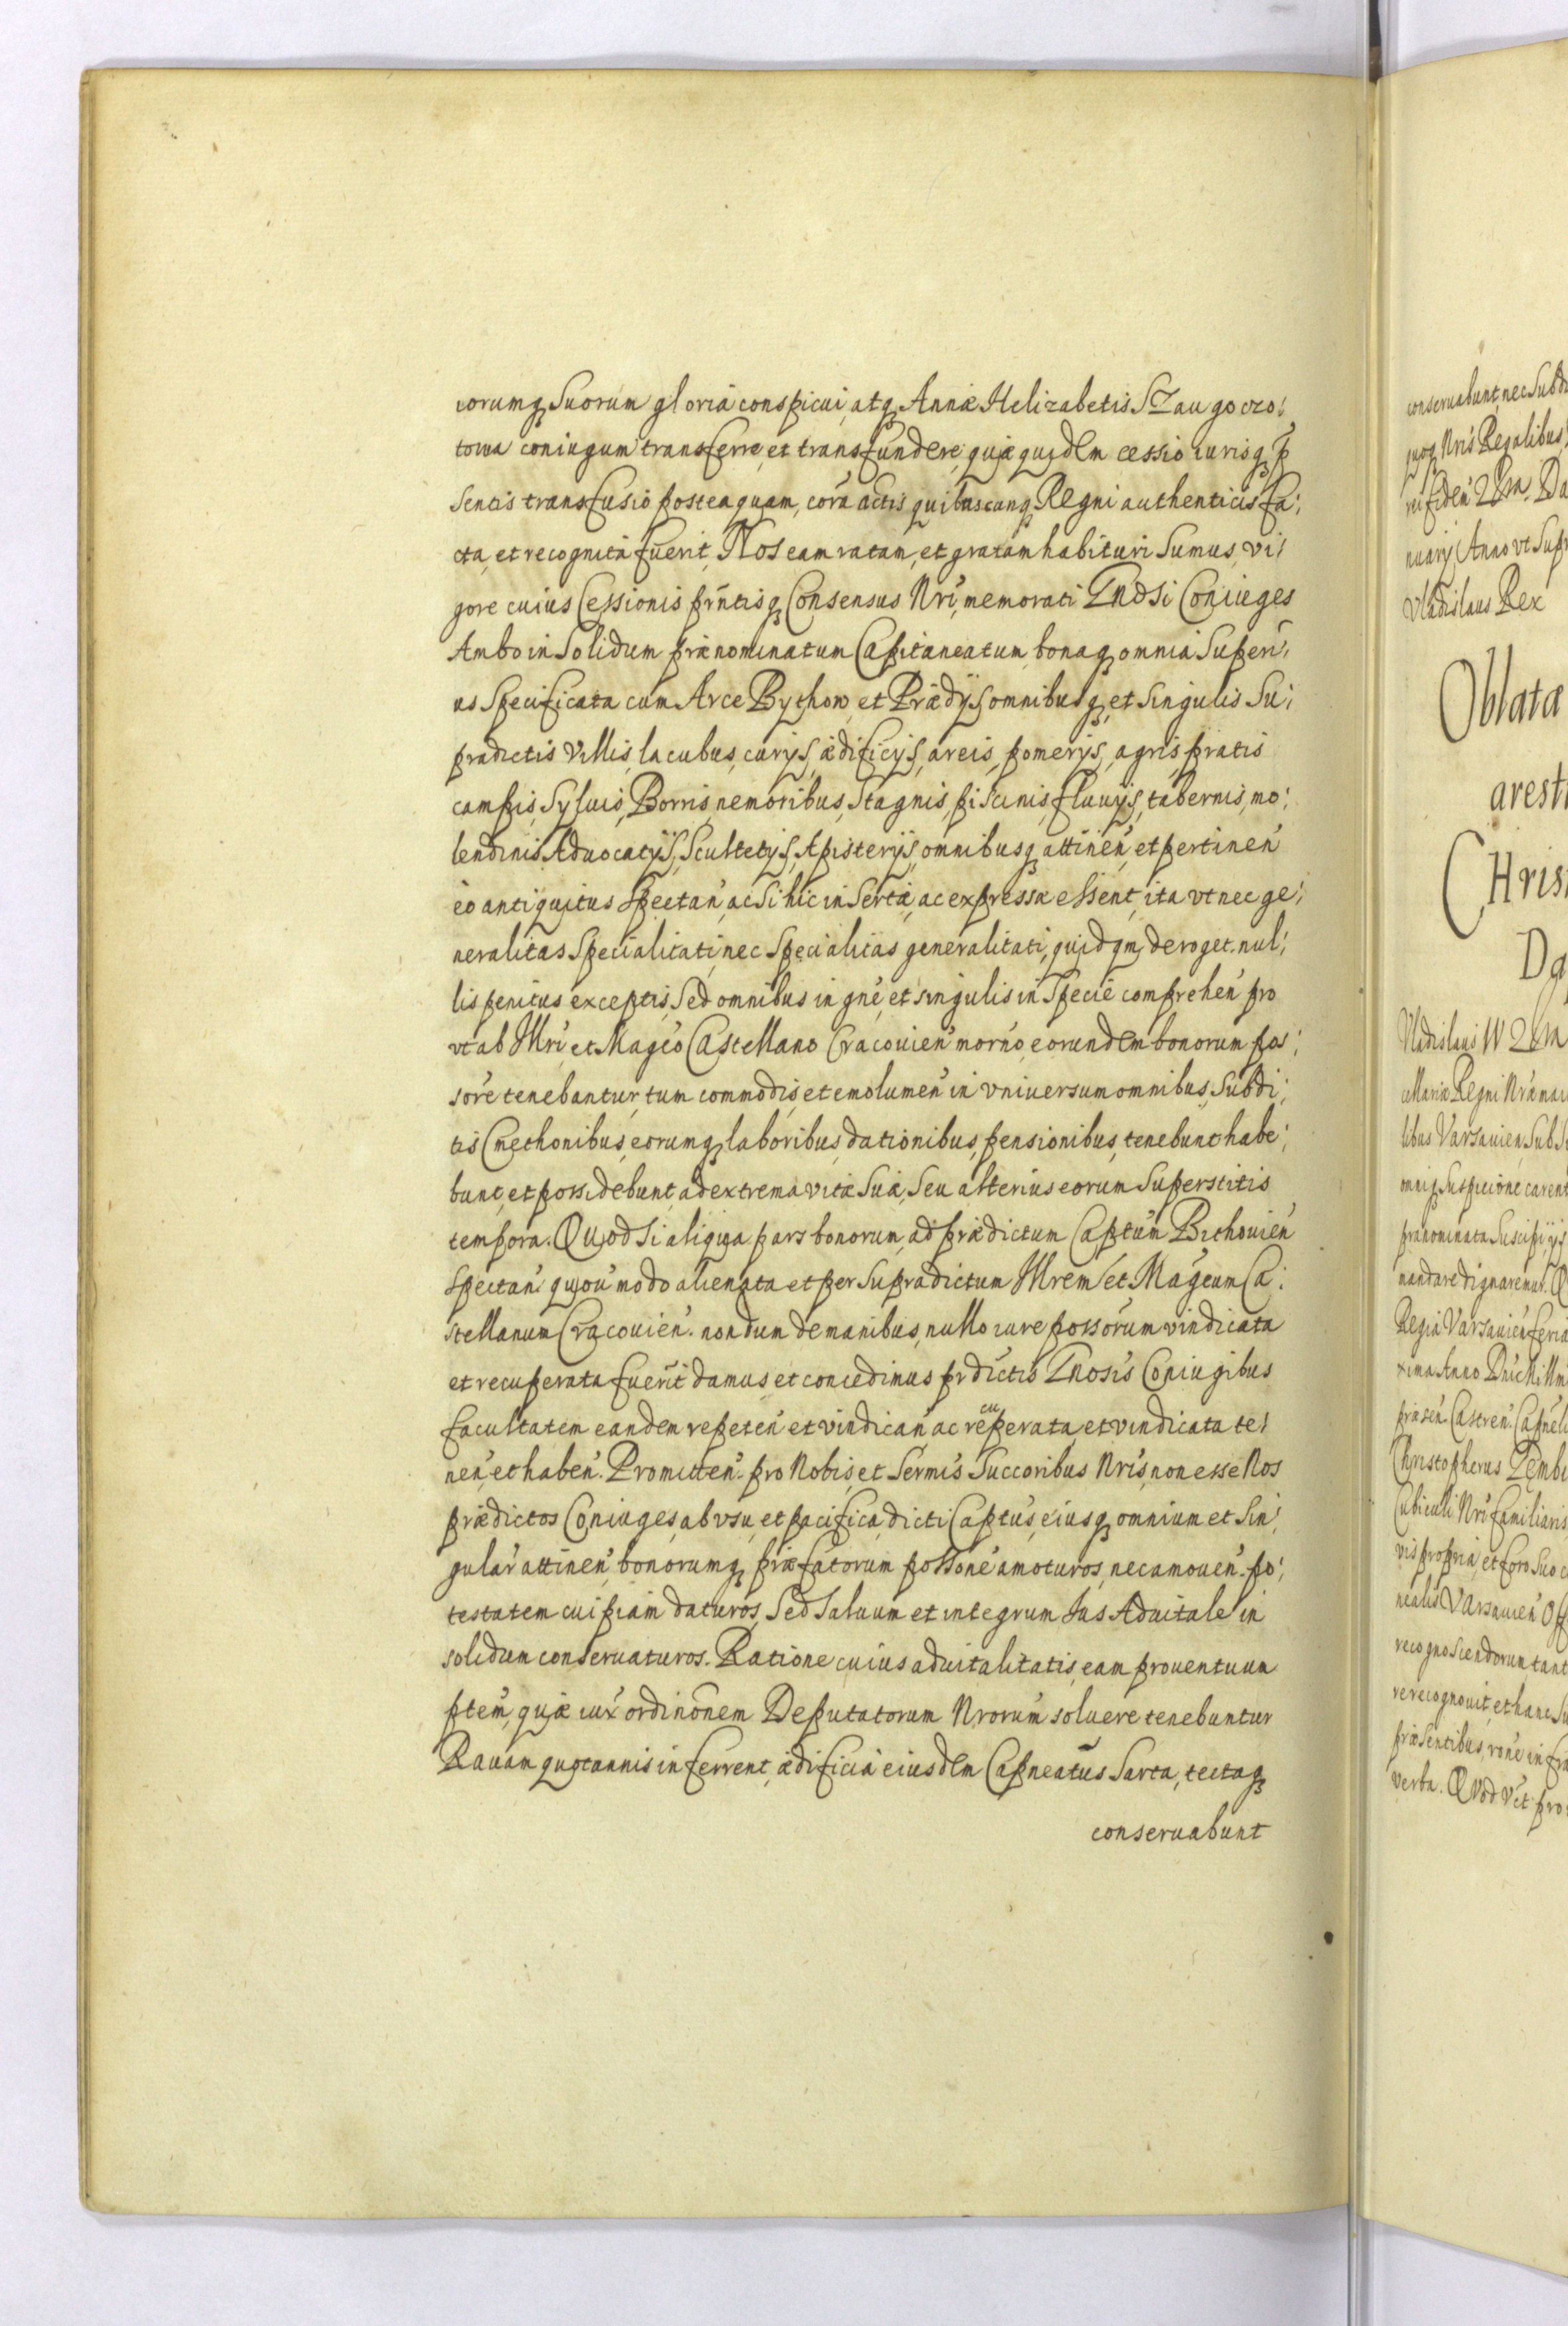 iorumq Suorum gloria conspicui, atq Annæ Helizabetis
towa coniugum transferre, et transfundere, quæ quidem cessio iurisq p
sentis transfusio posteaquam, cora actis quibuscunq Regni authenticis fa:
cta, et recognita fuerit, Nos eam ratam, et gratam habituri Sumus, vi:
gore cuius Cessionis prntisq Consensus Nri, memorati Gnosi Coniuges
Ambo in Solidum prænominatum Capitaneatum, bonaq omnia Superi:
us Specificata cum Arce Bythow, et Prædijs omnibusq, et Singulis Su:
pradictis Villis, lacubus, curijs, ædificijs, areis, pomerijs, agris, pratis
campis, Syluis, Borris, nemoribus, Stagnis, piscinis, fluuijs, tabernis, mo:
lendinis Aduocatijs, Scultetijs, Apisterijs, omnibusq attinen, et pertinen
eo antiquitus Spectan, ac Si hic inserta, ac expressa essent, ita vt nec ge:
neralitas Specialitati, nec Specialitas generalitati, quidqm deroget. nul:
lis penitus exceptis, Sed omnibus in gne, et singulis in Specie comprehen pro
vt ab Illri et Magco Castellano Cracouien morno eorundem bonorum pos:
sore tenebantur, tum commodis, et emolumen in vniversum omnibus, Subdi:
tis Cmethonibus, eorumq laboribus, dationibus, pensionibus, tenebunt habe:
bunt, et possidebunt, ad extrema vitæ Suæ, Seu alterius eorum Superstitis
tempora. Quod Si aliqua pars bonorum, ad prædictum Captum Bithouien
Spectan quou modo alienata et per Supradictum Illrem et Magcum Ca:
stellanum Cracouien. nondum de manibus, nullo iure possorum vindicata
et recuperata fuerit damus, et concedimus prdictis Gnosis Coniugibus
facultatem eandem repeten et vindican ac recuperata, et vindicata te:
nen, et haben. Promitten. pro Nobis, et Sermis Succoribus Nris, non esse Nos
prædictos Coniuges, ab vsu, et pacifica, dicti Captus, eiusq omnium et Sin:
gular attinen, bonorumq præfatorum possone amoturos, nec amouen. po:
testatem cuipiam daturos, Sed Saluum et integrum Ius Aduitale in
solidum conseruaturos. Ratione cuius aduitalitatis, eam prouentuum
ptem, quæ iux ordinonem Deputatorum Nrorum soluere tenebuntur
Rauam quotannis inferrent, ædificia eiusdem Capneatus Sarta, tectaq
conseruabunt
conseruabunt, nec Subd
quoq Nris Regalibus,
nuarij Anno vt Supr
Vladislaus Rex
Oblata
arest
Chris
Vladislaus IV
cellariæ Regni Nræ
libus Varsauien Sub
omniq Suspicione carent
prænominata Suscipi
mandare dignaremur. Q
Regia Varsauien feria
xima Anno Dni Millm
præsen. Castren. Capneal
Christopherus
Cubiculi Nri familiaris
propria, et foro Suo
nealis Varsauien
recognoscendorum tant
recognouit, et hanc
præsentibus, rone
verba. Quod vt pro